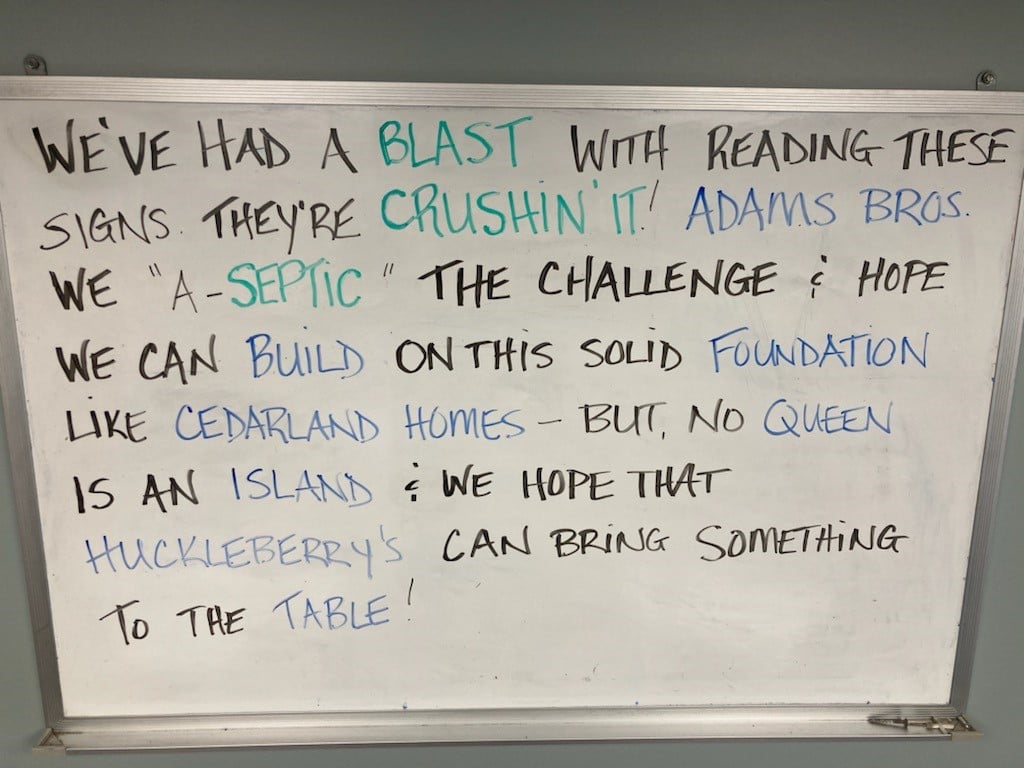 WE'VE HAD A BLAST WITH READING THESE
SIGNS. THEY'RE CRUSHIN' IT! ADAMS BROS.
WE "A-SEPTIC" THE CHALLENGE & HOPE
WE CAN BUILD ON THIS SOLID FOUNDATION
LIKE CEDARLAND HOMES - BUT, NO QUEEN
IS AN ISLAND & WE HOPE THAT
HUCKLEBERRY'S CAN BRING SOMETHING
TO THE TABLE!